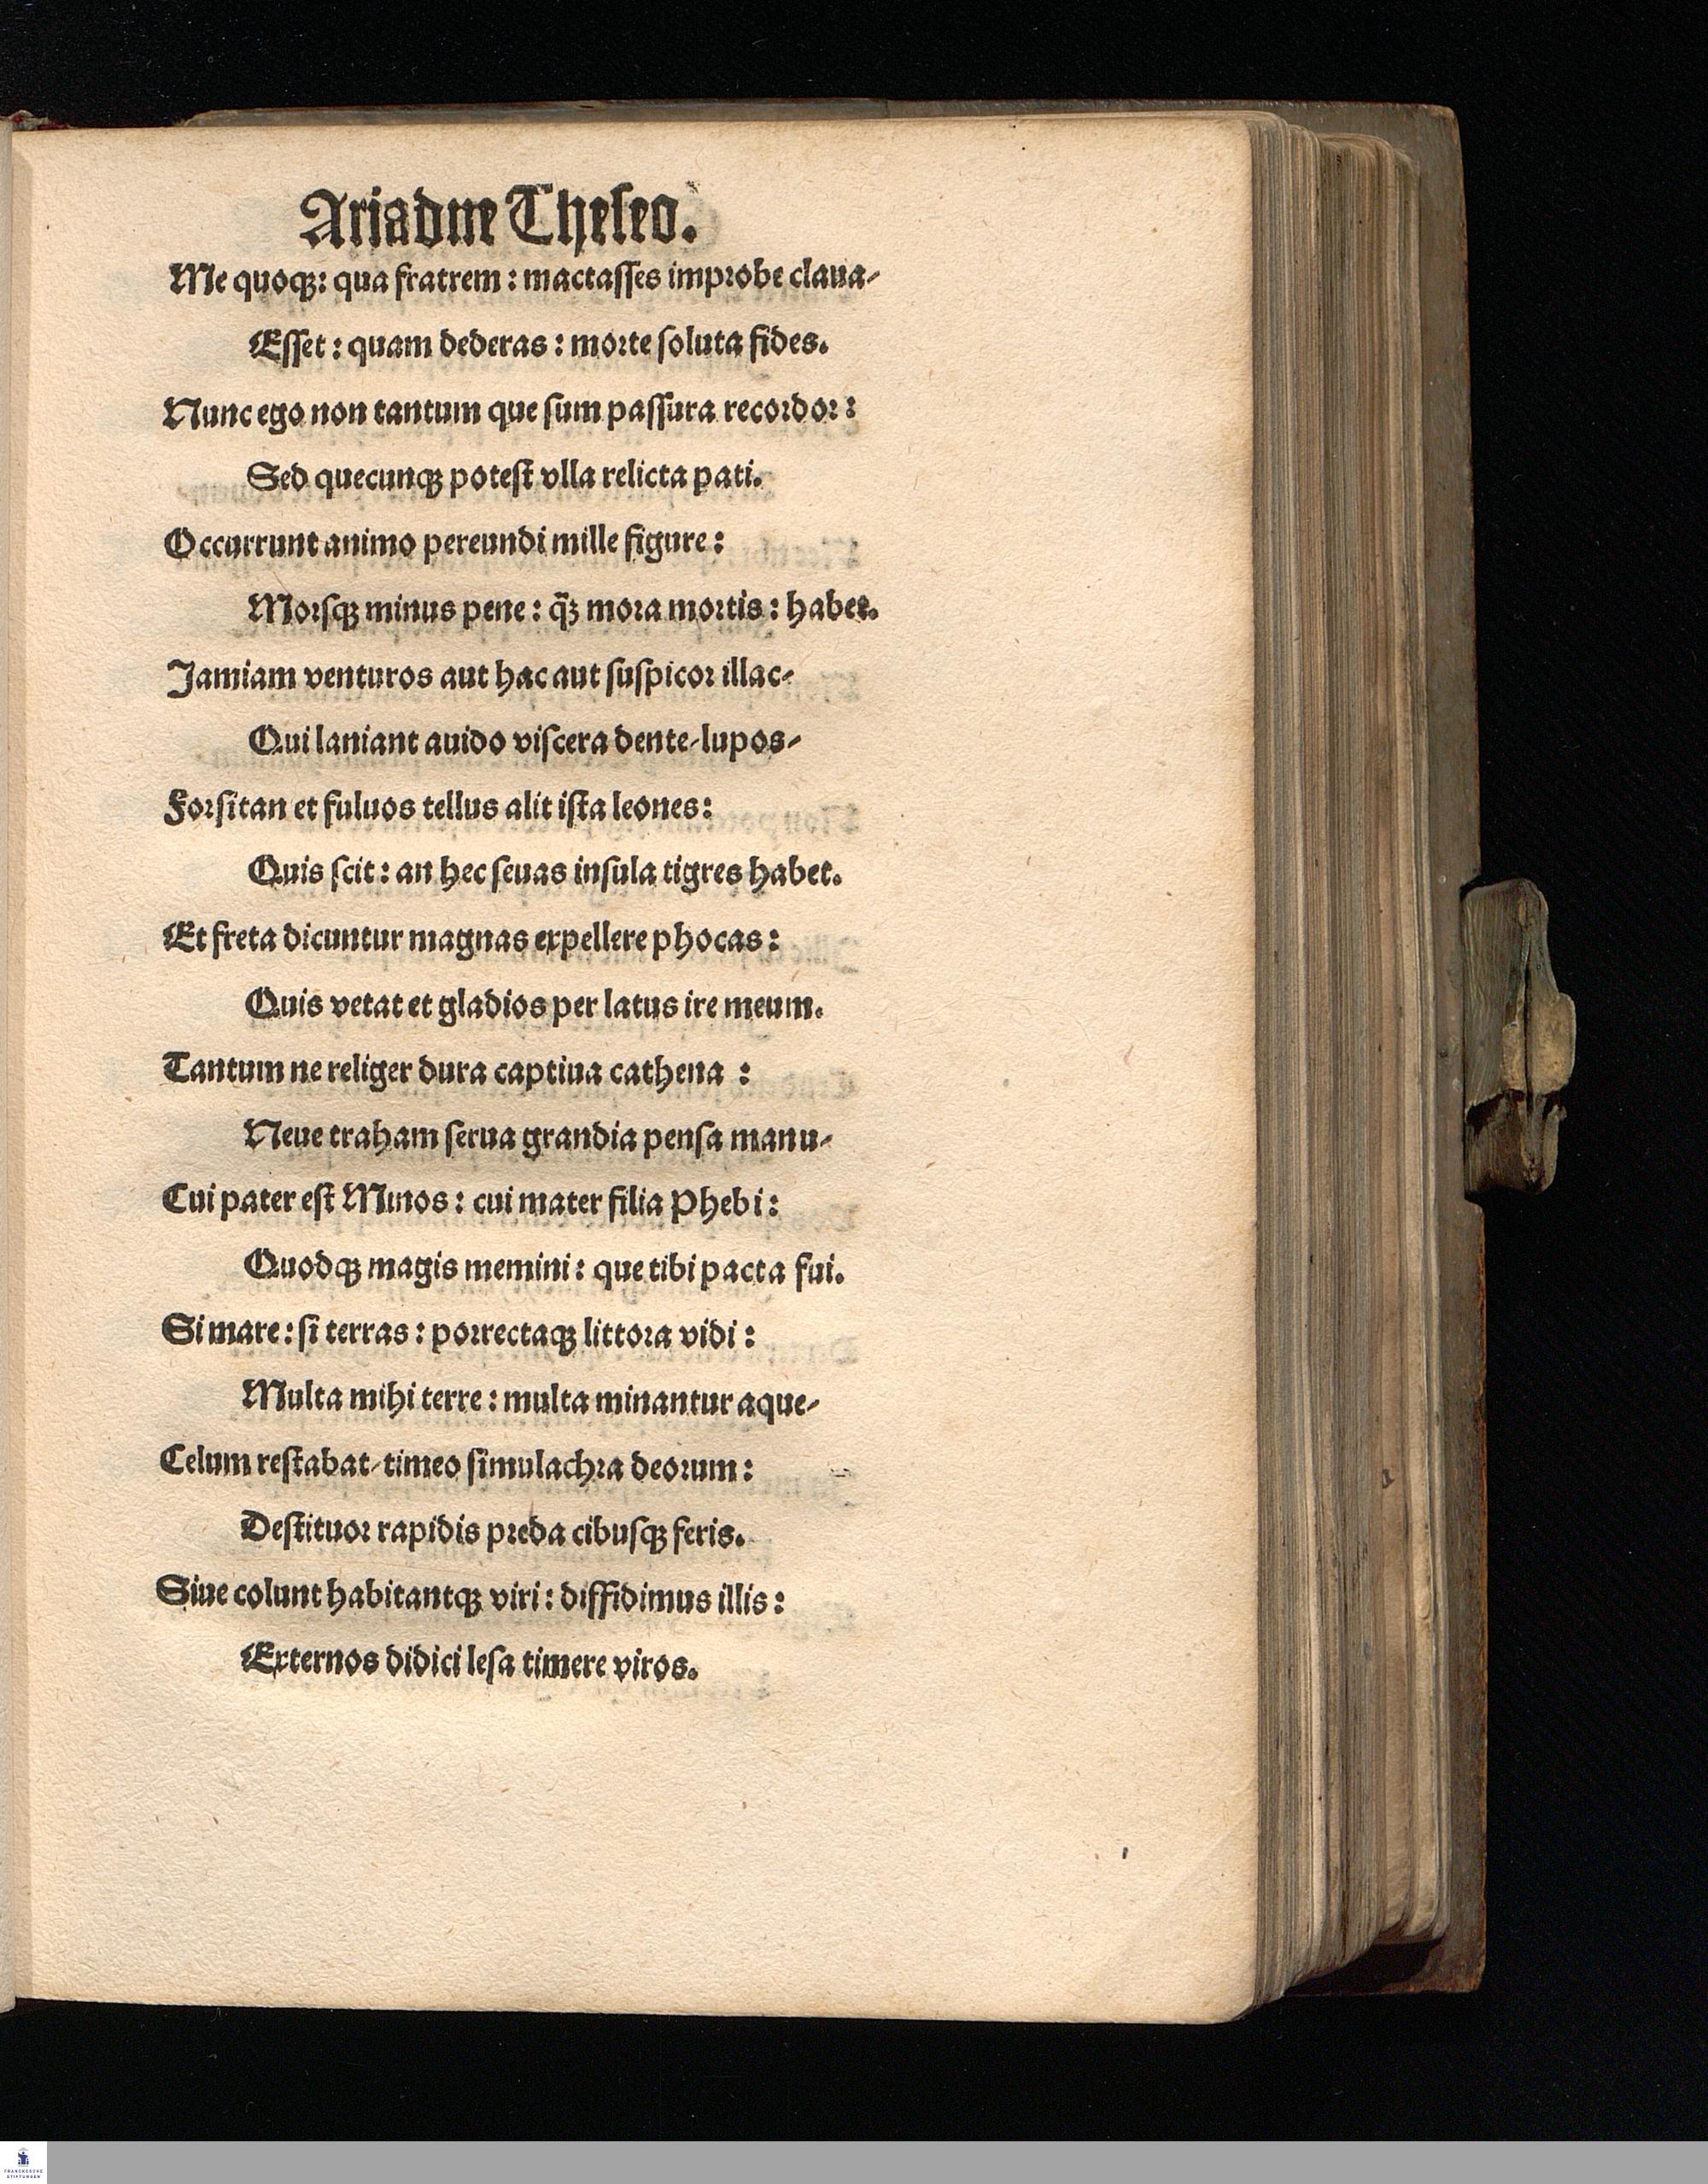 Ariadne Theseo.
Me quoqꝫ: qua fratrem: mactaſſes improbe claua⸗
Eſſet: quam dederas: morte ſoluta fides.
Nunc ego non tantum que ſum paſſura recordor:
Sed quecunqꝫ poteſt vlla relicta pati.
Occurrunt animo pereundi mille figure:
Morſqꝫ minus pene: q̃ꝫ mora mortis: habet.
Jamiam venturos aut hac aut ſuſpicor illac⸗
Qui laniant auido viſcera dente⸗lupos⸗
Forſitan et fuluos tellus alit iſta leones:
Quis ſcit: an hec ſeuas inſula tigres habet.
Et freta dicuntur magnas expellere phocas:
Quis vetat et gladios per latus ire meum.
Tantum ne religer dura captiua cathena :
Neue traham ſerua grandia penſa manu⸗
Cui pater eſt Minos: cui mater filia Phebi:
Quodqꝫ magis memini: que tibi pacta fui.
Si mare: ſi terras: porrectaqꝫ littora vidi:
Multa mihi terre: multa minantur aque⸗
Celum reſtabat⸗timeo ſimulachra deorum:
Deſtituor rapidis preda cibuſqꝫ feris.
Siue colunt habitantqꝫ viri: diffidimus illis:
Externos didici leſa timere viros.
FRANCKESCHE
STIFTUNGEN